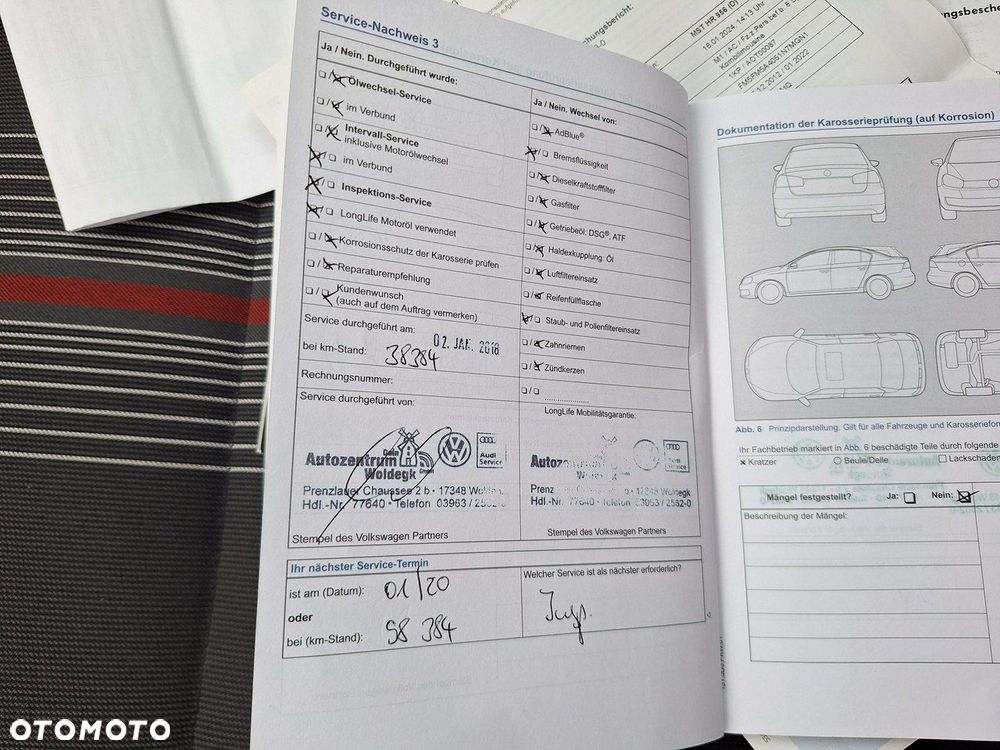 Service-Nachweis 3
Ja / Nein. Durchgeführt wurde:
Ölwechsel-Service
im Verbund
Intervall-Service
inklusive Motorölwechsel
im Verbund
Inspektions-Service
LongLife Motoröl verwendet
Korrosionsschutz der Karosserie prüfen
Reparaturempfehlung
Kundenwunsch
(auch auf dem Auftrag vermerken)
Service durchgeführt am:
02. JAN. 2018
bei km-Stand: 38384
Rechnungsnummer:
Service durchgeführt von:
Dein
Autozentrum
Woldegk
GmbH
Audi
Service
Prenzlauer Chaussee 2 b • 17348
Hdl.-Nr. 77640 • Telefon 03963 /
Stempel des Volkswagen Partners
Ja / Nein. Wechsel von:
AdBlue®
Bremsflüssigkeit
Dieselkraftstofffilter
Gasfilter
Getriebeöl: DSG®, ATF
Haldexkupplung: Öl
Luftfiltereinsatz
Reifenfüllflasche
Staub- und Pollenfiltereinsatz
Zahnriemen
Zündkerzen
LongLife Mobilitätsgarantie:
Woldegk
Audi
Service
Prenz
17348 Woldegk
Hdl.-Nr. 77640 • Telefon 03963 / 2562-0
Stempel des Volkswagen Partners
Ihr nächster Service-Termin
ist am (Datum): 01/20
oder
bei (km-Stand): 58 384
Welcher Service ist als nächster erforderlich?
Insp.
MST HR 956 (D)
16.01.2024, 14:13 Uhr
M1 / AC / Fz.z.Pers.bef.b. 8
Kombilimousine
1KP / AOT00087
12.2012 / 01.2022
chungsbericht:
Dokumentation der Karosserieprüfung (auf Korrosion)
Abb. 6 Prinzipdarstellung. Gilt für alle Fahrzeuge und Karosseriefor
Ihr Fachbetrieb markiert in Abb. 6 beschädigte Teile durch folgende
× Kratzer
Beule/Delle
Lackschaden
Mängel festgestellt? Ja: Nein:
Beschreibung der Mängel:
OTOMOTO